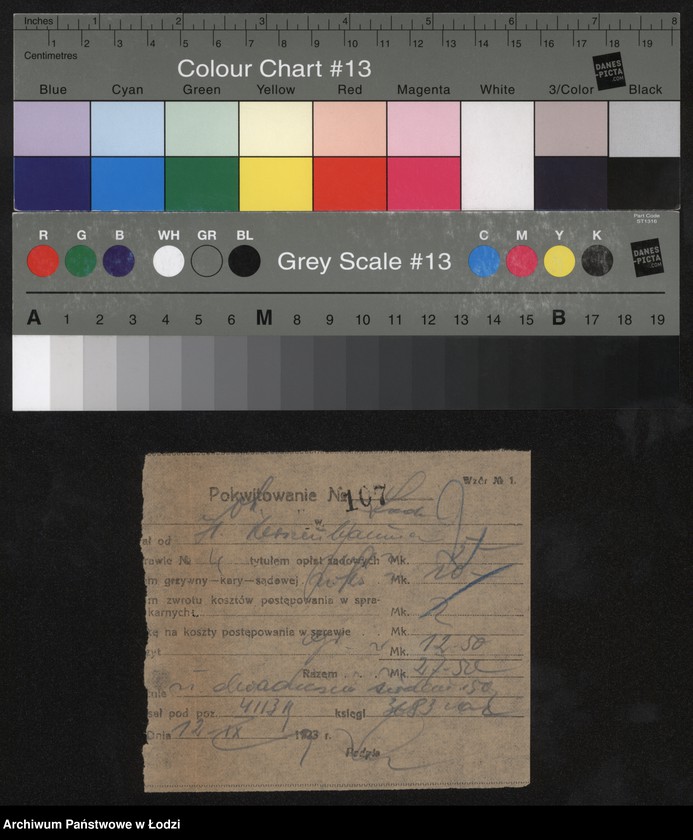 Inches 1 2 3 4 5 6 7 8
Centimetres 1 2 3 4 5 6 7 8 9 10 11 12 13 14 15 16 17 18 19
Colour Chart #13
DANES
-PICTA
.COM
Blue Cyan Green Yellow Red Magenta White 3/Color Black
Part Code
ST1316
R G B WH GR BL Grey Scale #13 C M Y K
DANES
-PICTA
.COM
A 1 2 3 4 5 6 M 8 9 10 11 12 13 14 15 B 17 18 19
Wzór № 1.
Pokwitowanie № 107
w
ał od
rawie № tytułem opłat sądowych Mk.
m grzywny—kary—sądowej Mk.
m zwrotu kosztów postępowania w spra-
karnych Mk.
kę na koszty postępowania w sprawie Mk.
Mk. 12-50
Razem Mk. 27-50
nie dwadzieścia siedem 50
sał pod poz. księgi
Dnia 12 IX 1923 r.
Podpis
Archiwum Państwowe w Łodzi